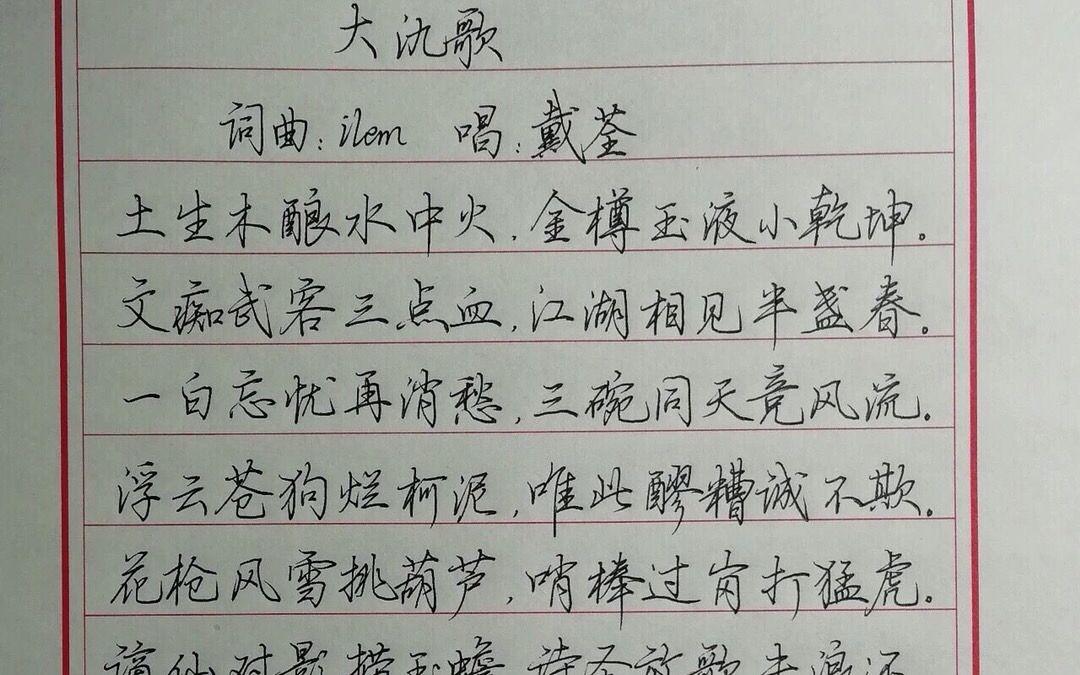 大氿歌
词曲:ilem 唱:戴荃
土生木酿水中火,金樽玉液小乾坤。
文痴武客三点血,江湖相见半盏春。
一白忘忧再消愁,三碗同天竞风流。
浮云苍狗烂柯泥,唯此醪糟诚不欺。
花枪风雪挑葫芦,哨棒过岗打猛虎。
谪仙对影捞玉蟾,诗圣放歌去浪还